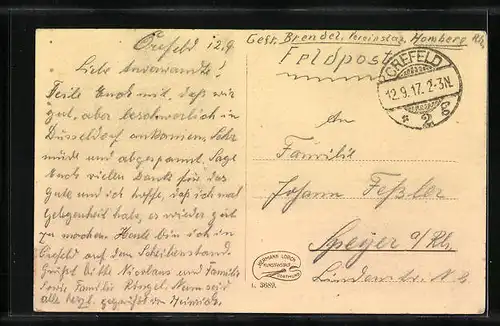 Gefr. Brendel, Vereinslaz. Homberg Rh.
Crefeld 12.9.
Feldpost
CREFELD
12.9.17. 2-3N.
* 2
Liebe Anverwandte!
Teile Euch mit, daß wir
gut, aber beschwerlich in
Düsseldorf ankamen. Sehr
müde und abgespannt. Sage
Euch vielen Dank für das
Gute und ich hoffe, daß ich mal
Gelegenheit habe, es wieder gut
zu machen. Heute bin ich in
Crefeld auf dem Scheibenstand.
Grüßt bitte Nicolaus und Familie
sowie Familie
alle herzl. gegrüßt von Heinrich.
An
Familie
Johann Feßler
Speyer a/Rh.
HERMANN LORCH
KUNSTVERLAG
DORTMUND
L. 3689.